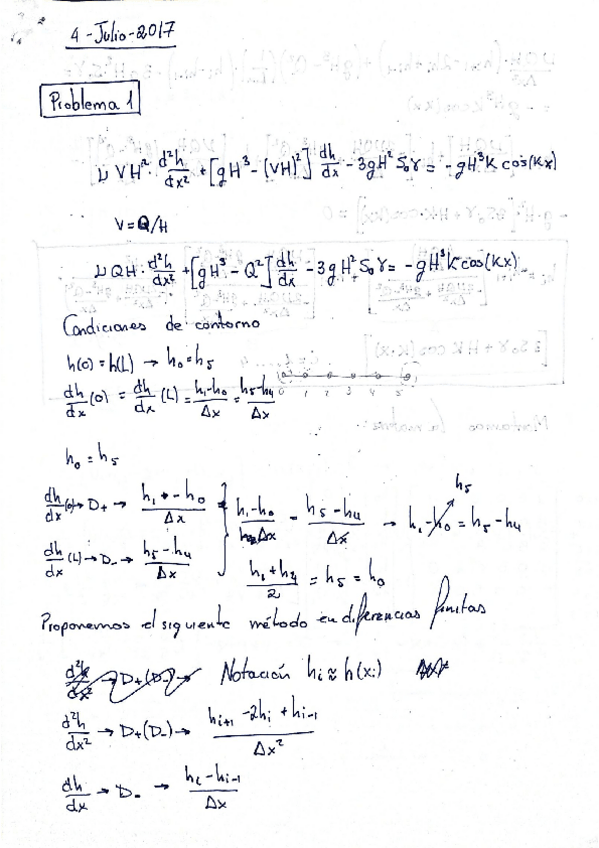 4-Julio-2017
Problema 1
ν VH² · d²h/dx² + [gH³ - (VH)²] dh/dx - 3gH² S₀γ = -gH³K cos(Kx)
V = Q/H
ν QH · d²h/dx² + [gH³ - Q²] dh/dx - 3gH² S₀γ = -gH³K cos(Kx)
Condiciones de contorno
h(0) = h(L) → h₀ = h₅
dh/dx (0) = dh/dx (L) = (h₁-h₀)/Δx = (h₅-h₄)/Δx
0 1 2 3 4 5
h₀ = h₅
dh/dx (0) → D₊ → (h₁ - h₀)/Δx
dh/dx (L) → D₋ → (h₅ - h₄)/Δx
(h₁-h₀)/Δx = (h₅-h₄)/Δx → h₁ - h₀ = h₅ - h₄
h₅
(h₁+h₄)/2 = h₅ = h₀
Proponemos el siguiente método en diferencias finitas
d²h/dx² → D₊(D₋) → Notación hᵢ ≈ h(xᵢ)
d²h/dx² → D₊(D₋) → (hᵢ₊₁ - 2hᵢ + hᵢ₋₁)/Δx²
dh/dx → D₋ → (hᵢ - hᵢ₋₁)/Δx